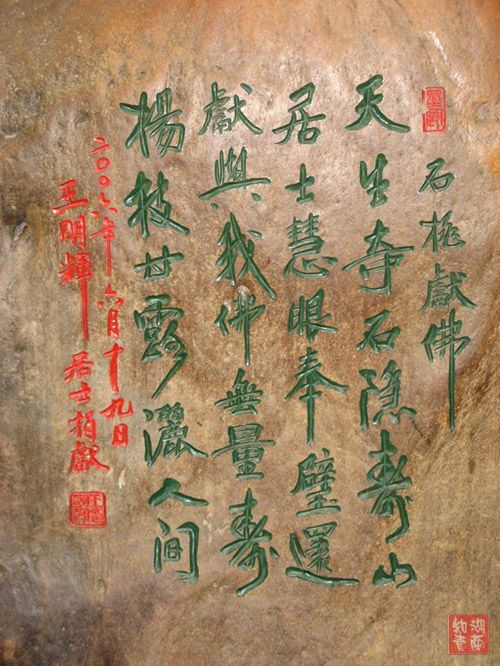 石桃獻佛
天生奇石隐壽山
居士慧眼奉璧還
獻與我佛無量壽
楊枝甘露灑人间
二〇〇六年六月十九日
王明輝居士捐獻